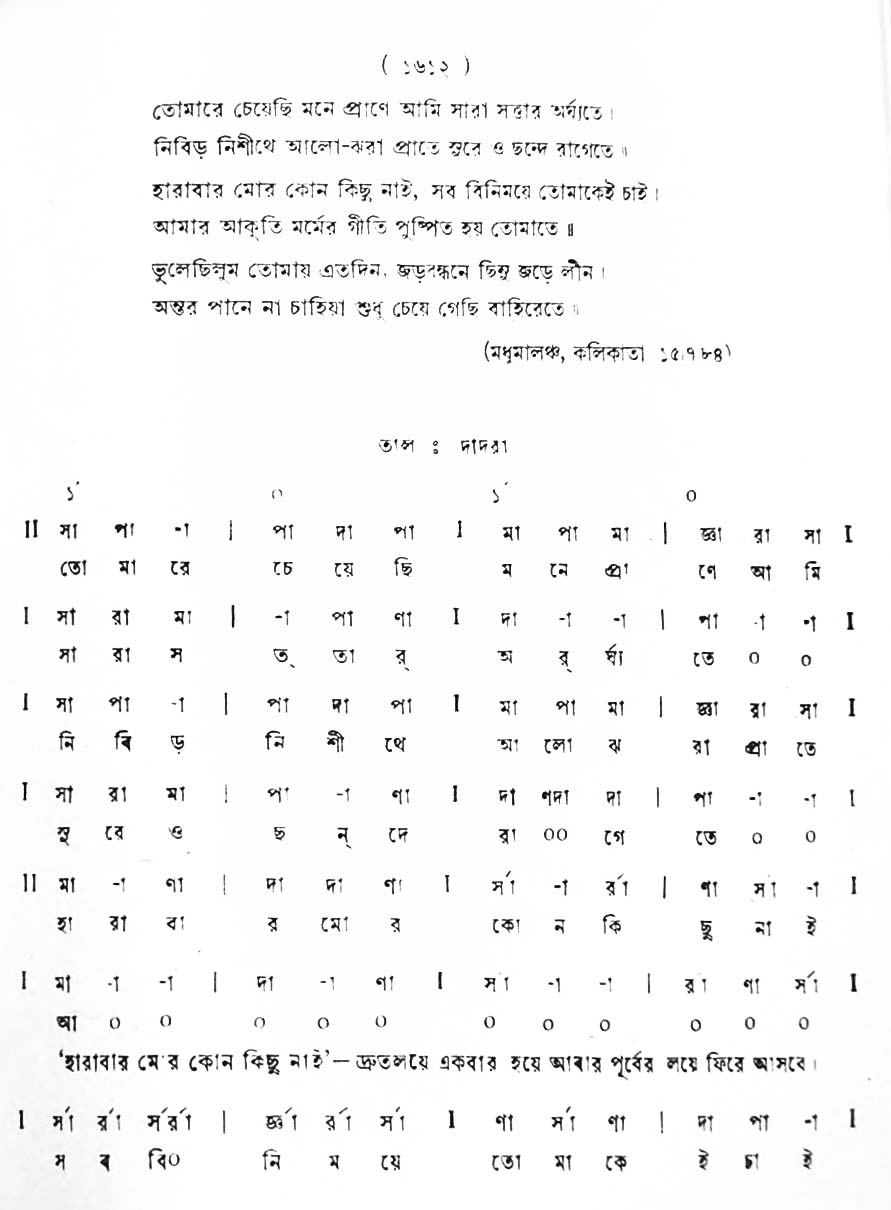 ( ১৬১২ )
তোমারে চেয়েছি মনে প্রাণে আমি সারা সত্তার অর্ঘ্যতে।
নিবিড় নিশীথে আলো-ঝরা প্রাতে সুরে ও ছন্দে রাগেতে॥
হারাবার মোর কোন কিছু নাই, সব বিনিময়ে তোমাকেই চাই।
আমার আকূতি মর্মের গীতি পুষ্পিত হয় তোমাতে॥
ভুলেছিলুম তোমায় এতদিন, জড়বন্ধনে ছিনু জড়ে লীন।
অন্তর পানে না চাহিয়া শুধু চেয়ে গেছি বাহিরেতে॥
(মধুমালঞ্চ, কলিকাতা ১৫।৭।৮৪)
তাল : দাদরা
১´ ০ ১´ ০
II সা পা -া | পা দা পা I মা পা মা | জ্ঞা রা সা I
তো মা রে চে য়ে ছি ম নে প্রা ণে আ মি
I সা রা মা | -া পা ণা I দা -া -া | পা -া -া I
সা রা স ত্ তা র্ অ র্ ঘ্য তে ০ ০
I সা পা -া | পা দা পা I মা পা মা | জ্ঞা রা সা I
নি বি ড় নি শী থে আ লো ঝ রা প্রা তে
I সা রা মা | পা -া ণা I দা ণদা দা | পা -া -া I
সু রে ও ছ ন্ দে রা ০০ গে তে ০ ০
II মা -া ণা | দা দা ণা I র্সা -া র্রা | ণা সা -া I
হা রা বা র মো র কো ন কি ছু না ই
I মা -া -া | দা -া ণা I সা -া -া | রা ণা র্সা I
আ ০ ০ ০ ০ ০ ০ ০ ০ ০ ০ ০
‘হারাবার মোর কোন কিছু নাই’— দ্রুতলয়ে একবার হয়ে আবার পূর্বের লয়ে ফিরে আসবে।
I র্সা র্রা র্সর্রা | র্জ্ঞা র্রা র্সা I ণা র্সা ণা | দা পা -া I
স ব বি০ নি ম য়ে তো মা কে ই চা ই